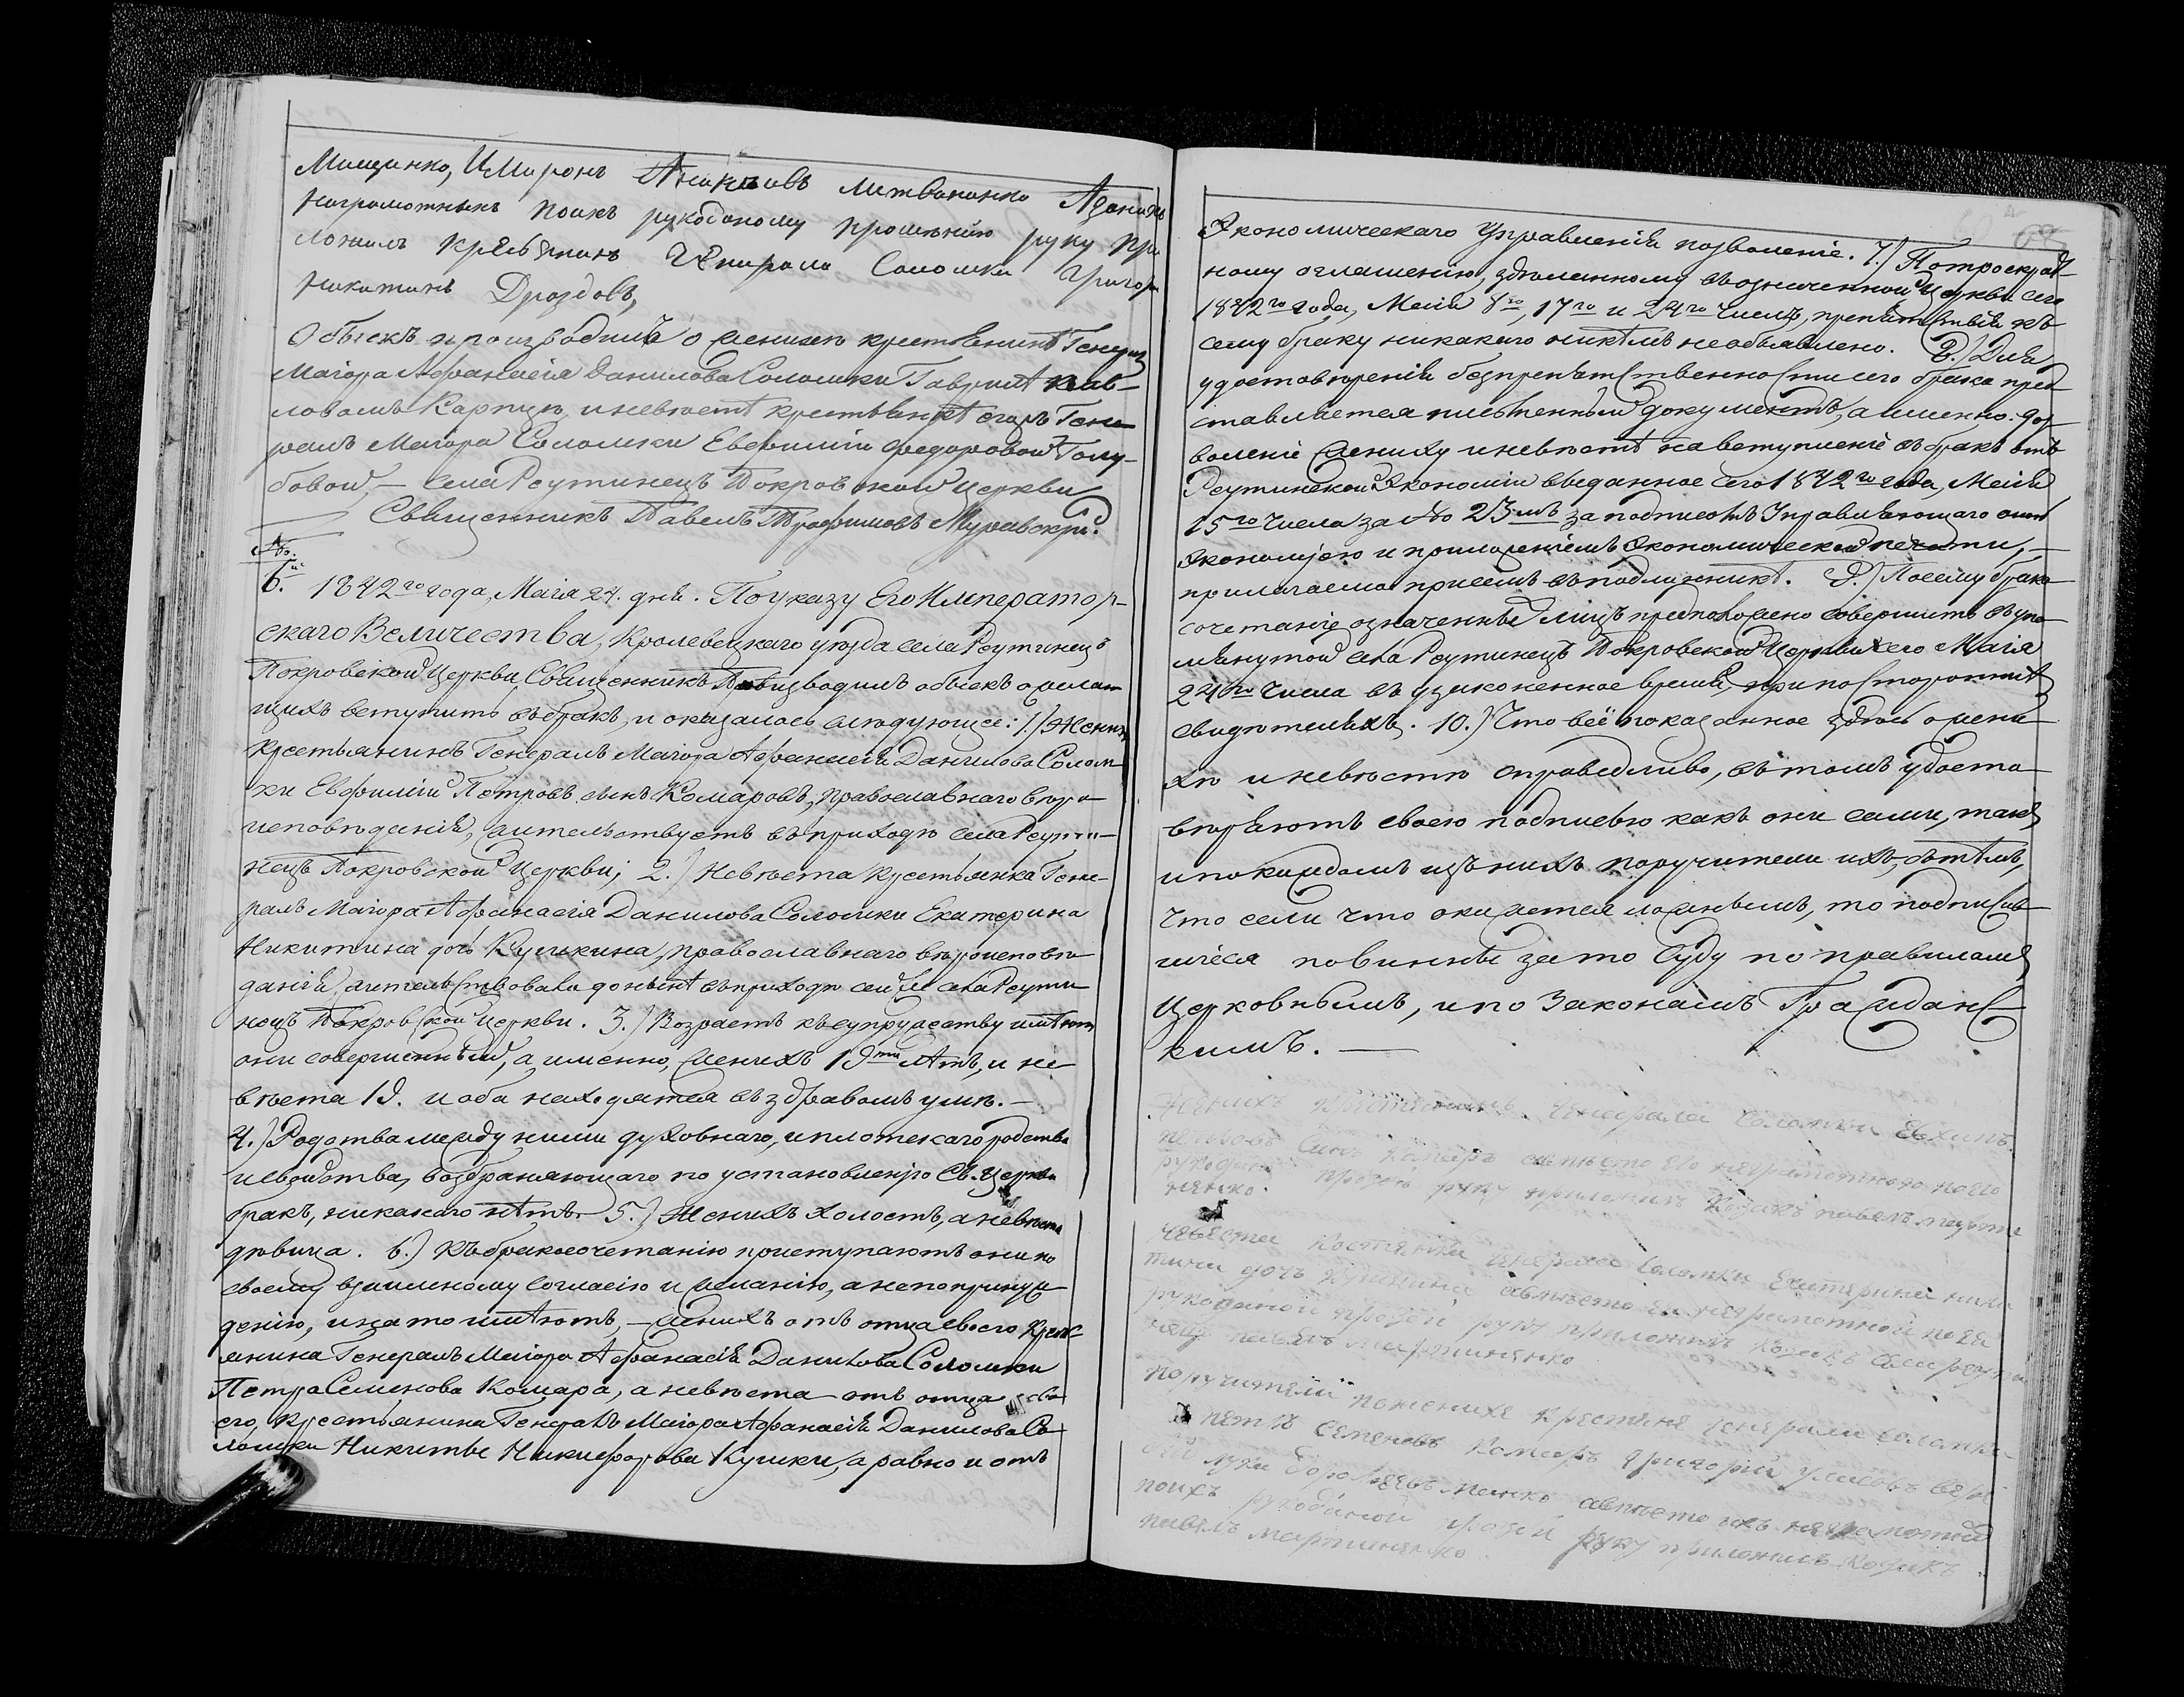 Мищинко, И Миронъ Литвоненко
неграмотныхъ поихъ рукоданому прошению руку при
ложилъ Григор
Никитинъ Дроздовъ,
Обыскъ производилъ о женихе крестьянинѣ Генерал
Маіора Афанасія Данилова Соломки Гаврилѣ Пав-
ловомъ и невѣстѣ крестьянкѣ Гене
ралъ Маіора Соломки Евфиміи Федоровой Голу-
бовой, — села Реутинецъ Покровской церкви
Священникъ Павелъ Трофимовъ Муравскій.
№
6. 1842го года, Маія 24. дня. По указу Его Император-
скаго Величества, Кролевецкаго уѣзда села Реутинецъ
Покровской Церкви, Священникъ производилъ обыскъ о желаю
щихъ вступить въ бракъ, и оказалось слѣдующее: 1.) Жених
крестьянинъ Генералъ Маіора Афанасія Данилова Солом
ки Евфимій Петровъ сынъ Комаровъ, православнаго вѣро
исповѣданія, жительствуетъ въ приходѣ села Реути-
нецъ Покровской Церкви; 2.) Невѣста крестьянка Гене-
ралъ Маіора Афанасія Данилова Соломки Екатерина
Никитина дочь Кулькина, православнаго вѣроисповѣ
данія, жительствовала донынѣ въ приходѣ сей же села Реути
нецъ Покровской Церкви. 3.) Возрастъ къ супружеству имѣютъ
они совершенный, а именно, женихъ 19ти лѣтъ, и не
вѣста 19. и оба находятся въ здравомъ умѣ. —
4.) Родства между ними духовнаго, и плотскаго родства
и свойства, возбраняющаго по установленію Св. Церкви
бракъ, никакого нѣтъ. 5.) Женихъ холостъ, а невѣста
дѣвица. 6.) Къ бракосочетанію приступаютъ они по
своему взаимному согласію и желанію, а не по принуж
денію, и на то имѣютъ, — женихъ отъ отца своего крест
янина Генералъ Маіора Афанасія Данилова Соломки
Петра Семенова Комара, а невѣста отъ отца сво
его, крестьянина Генералъ Маіора Афанасія Данилова Со
ломки Никиты Никифорова Кульки, а равно и отъ
Экономическаго Управленія позволеніе. 7.) По троекрат
ному оглашенію, здѣланному въ означенной Церкви сего
1842го года, Маія 8го, 17го и 24го чиселъ, препятствія къ
сему браку никакого никѣмъ не объявлено. 8.) Для
удостовѣренія безпрепятственности сего брака пред
ставляется письменный документъ, а именно: доз
воленіе жениху и невѣстѣ на вступленіе въ бракъ отъ
Реутинской Экономіи выданное сего 1842го года, Маія
15го числа за № 23мъ за подписомъ Управляющаго оной
Экономіею и приложеніемъ Экономической печати, —
прилагаемое при семъ въ подлинникѣ. 9.) Посему брако
сочетаніе означенныхъ лицъ предположено совершить въ упо
мянутой села Реутинецъ Покровской Церкви сего Маія
24го числа въ узаконенное время, при постороннихъ
свидѣтеляхъ. 10.) Что всё показанное здѣсь о жени
хѣ и невѣстѣ справедливо, въ томъ удосто
вѣряютъ своею подписью какъ они сами, такъ
и по каждомъ изъ нихъ поручители ихъ, съ тѣмъ,
что если что окажется ложнымъ, то подписав
шіеся повинны за то суду по правиламъ
Церковнымъ, и по Законамъ Граждан
кимъ. —
Женихъ Генерала Соломки Евхимъ
Петровъ Синъ Комаръ неграмотного поего
руку приложилъ Козакъ Павелъ
невести Генерала Соломки Екатерина Ники
тина дочь неграмотной поея
рукоданой прозби руку приложилъ Козакъ
Павелъ Мартиненко
поручители пожениха крестяне генерала Соломки
Петръ Семеновъ Комаръ Григорій
неграмотныхъ
поихъ рукоданой прозби руку приложилъ Козакъ
Павелъ Мартиненко.